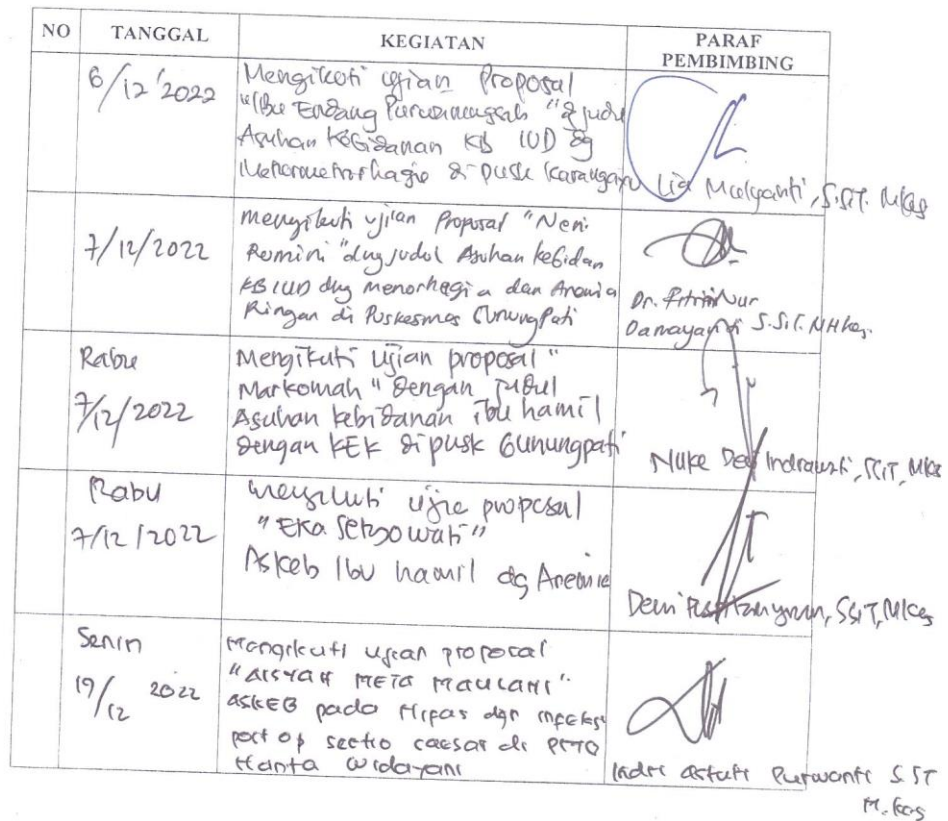 NO TANGGAL KEGIATAN PARAF PEMBIMBING
6/12 '2022
Mengikuti ujian Proposal
"Ibu Endang Purwaningsih" dg judul
Asuhan Kebidanan KB IUD dg
Menometrorhagie di pusk Karangayu
Lia Mulyanti, S.SiT. MKes
7/12/2022
mengikuti ujian Proposal "Neni
Romini" dng judul Asuhan kebidan
KB IUD dng menorhagia dan Anemia
Ringan di Puskesmas GunungPati
Dr. Fitriani Nur
Damayanti S.SiT. MHkes.
Rabu
7/12/2022
Mengikuti ujian proposal "
Markomah" Dengan judul
Asuhan kebidanan ibu hamil
dengan KEK di pusk Gunungpati
Nuke Devi Indrawati, SSiT, MKes
Rabu
7/12/2022
mengikuti ujia proposal
"Eka Setyowati"
Askeb Ibu hamil dg Anemia
Dewi SSiT, MKes
Senin
19/12 2022
Mengikuti ujian proposal
"AISYAH META MAULANI".
ASKEB pada Nifas dgn infeksi
post op sectio caesar di
Hanta Widayani
Indri Astuti Purwanti S.ST
M.Kes